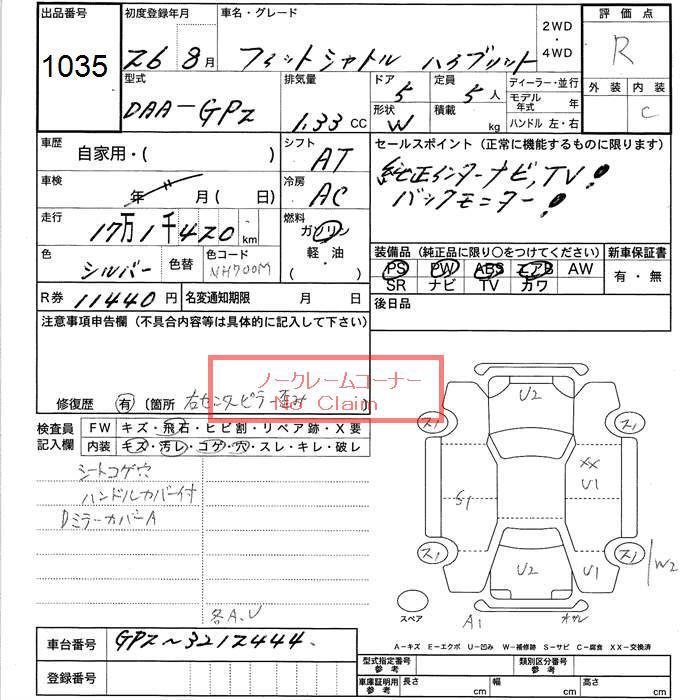 出品番号
1035
初度登録年月
26 8月
車名・グレード
フィットシャトル ハイブリッド
2WD
・
4WD
評価点
R
外装 内装
C
型式
DAA-GP2
排気量
1.33 CC
ドア
5
定員
5 人
形状
W
積載
kg
ディーラー・並行
モデル年式 年
ハンドル 左・右
車歴
自家用・( )
シフト
AT
車検
年 月 ( 日)
冷房
AC
走行
17万1千420 km
燃料
ガソリン
軽・油
( )
色
シルバー
色替
色コード
NH700M
R券 11440円
名変通知期限 月 日
セールスポイント(正常に機能するものに限ります)
純正インターナビ,TV!
バックモニター!
装備品(純正品に限り○をつけてください)
PS PW ABS エアB AW
SR ナビ TV カワ
新車保証書
有・無
後日品
注意事項申告欄(不具合内容等は具体的に記入して下さい)
ノークレームコーナー
No Claim
修復歴 有 〔箇所 右センターピラー歪み
検査員記入欄
FW キズ・飛石・ヒビ割・リペア跡・X要
内装 キズ・汚レ・コゲ・穴・スレ・キレ・破レ
シートコゲ穴
ハンドルカバー付
DミラーカバーA
各A,U
U2
ス1
ス1
XX
U1
S1
ス1
ス1
U2
U1
W2
A1
スペア
A-キズ E-エクボ U-凹み W-補修跡 S-サビ C-腐食 XX-交換済
車台番号
GP2~3212444
登録番号
型式指定番号
参考
類別区分番号
参考
車庫証明用
参考
長さ cm 幅 cm 高さ cm